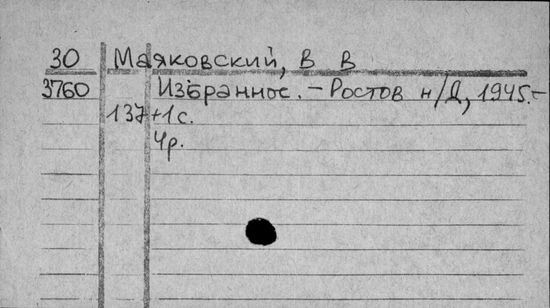 30 Маяковский, В В
3760 Избранное. – Ростов н/Д, 1945. –
137+1 с.
4р.